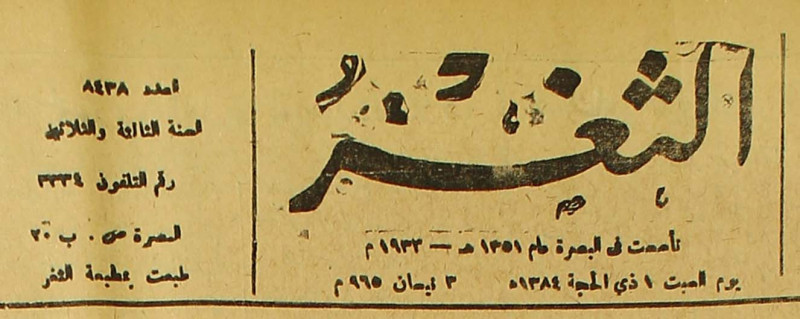 الثغر
تأسست في البصرة عام ١٣٥١ هـ — ١٩٣٣ م
يوم السبت ١ ذي الحجة ١٣٨٤هـ ٣ نيسان ٩٦٥ م
العدد ٨٤٣٨
السنة الثالثة والثلاثين
رقم التلفون ٣٣٣٤
البصرة ص . ب ٣٠
طبعت بمطبعة الثغر